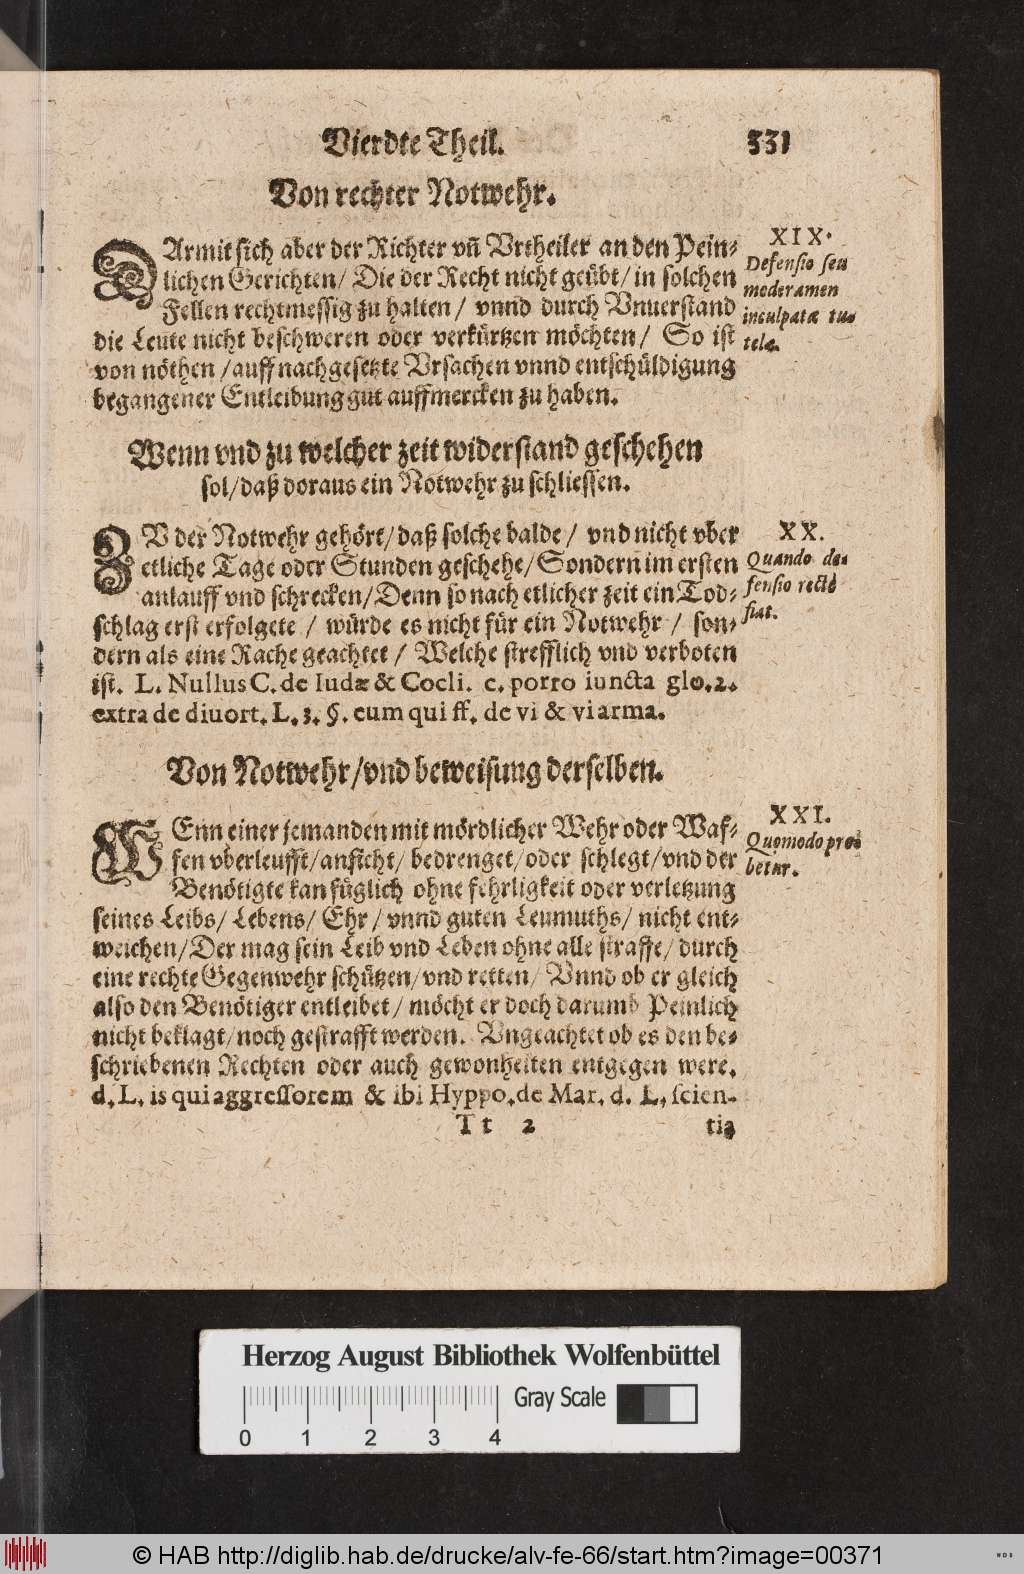 Vierdte Theil. 331
Von rechter Notwehr.
DArmit sich aber der Richter vn̄ Vrtheiler an den Pein⸗
lichen Gerichten/ Die der Recht nicht geübt/ in solchen
Fellen rechtmessig zu halten/ vnnd durch Vnuerstand
die Leute nicht beschweren oder verkürtzen möchten/ So ist
von nöthen /auff nachgesetzte Vrsachen vnnd entschüldigung
begangener Entleibung gut auffmercken zu haben.
XIX.
Defensio seu
moderamen
inculpatæ tu-
telæ.
Wenn vnd zu welcher zeit widerstand geschehen
sol/daß doraus ein Notwehr zu schliessen.
ZV der Notwehr gehört/daß solche balde/ vnd nicht vber
etliche Tage oder Stunden geschehe/Sondern im ersten
anlauff vnd schrecken/Denn so nach etlicher zeit ein Tod⸗
schlag erst erfolgete / würde es nicht für ein Notwehr / son⸗
dern als eine Rache geachtet / Welche strefflich vnd verboten
ist. L. Nullus C. de Iudæ & Cœli. c. porro iuncta glo. 2.
extra de diuort. L. 3. §. cum qui ff. de vi & vi arma.
XX.
Quando de-
fensio rectè
fiat.
Von Notwehr/vnd beweisung derselben.
WEnn einer jemanden mit mördlicher Wehr oder Waf⸗
fen vberleufft/anficht/ bedrenget/oder schlegt/vnd der
Benötigte kan füglich ohne fehrligkeit oder verletzung
seines Leibs/ Lebens/ Ehr/ vnnd guten Leumuths/ nicht ent⸗
weichen/Der mag sein Leib vnd Leben ohne alle straffe/ durch
eine rechte Gegenwehr schützen/vnd retten/ Vnnd ob er gleich
also den Benötiger entleibet/ möcht er doch darumb Peinlich
nicht beklagt/noch gestrafft werden. Vngeachtet ob es den be⸗
schriebenen Rechten oder auch gewonheiten entgegen were.
d. L. is qui aggressorem & ibi Hyppo. de Mar. d. L. scien-
XXI.
Quomodo pro-
betur.
Tt 2 tia
Herzog August Bibliothek Wolfenbüttel
Gray Scale
0 1 2 3 4
© HAB http://diglib.hab.de/drucke/alv-fe-66/start.htm?image=00371
WDB